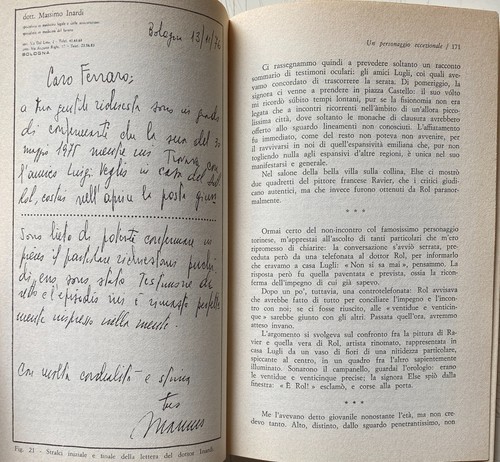 dott. Massimo Inardi
BOLOGNA
Bologna 13/11/76
Caro Ferraro;
a tua gentile richiesta sono in grado
di confermarti che la sera del 30
maggio 1975 mentre mi trovavo con
l'amico Luigi in casa del dott.
Rol, costui nell'aprire la posta
Sono lieto di poterti confermare in
pieno il particolare perché
di esso sono stato testimone
e l'episodio mi è rimasto
mente impresso nella mente.
Con molta cordialità e stima
tuo
Massimo
Fig. 21 - Stralci iniziale e finale della lettera del dottor Inardi.
Un personaggio eccezionale / 171
Ci rassegnammo quindi a prevedere soltanto un racconto
sommario di testimoni oculari: gli amici Lugli, coi quali ave-
vamo concordato di trascorrere la serata. Di pomeriggio, la
signora ci venne a prendere in piazza Castello: il suo volto
mi ricordò subito tempi lontani, pur se la fisionomia non era
legata che a incontri ricorrenti nell'àmbito di un'allora picco-
lissima città, dove soltanto le monache di clausura avrebbero
offerto allo sguardo lineamenti non conosciuti. L'affiatamento
fu immediato, come del resto non poteva non avvenire, per
il ravvivarsi in noi di quell'espansività emiliana che, pur non
togliendo nulla agli espansivi d'altre regioni, è unica nel suo
manifestarsi e generale.
Nel salone della bella villa sulla collina, Else ci mostrò
due quadretti del pittore francese Ravier, che i critici giudi-
cano autentici, ma che invece furono ottenuti da Rol paranor-
malmente.
* * *
Ormai certo del non-incontro col famosissimo personaggio
torinese, m'apprestai all'ascolto di tanti particolari che m'ero
ripromesso di chiarire: la conversazione s'avviò serrata, prece-
duta però da una telefonata al dottor Rol, per informarlo
che eravamo a casa Lugli: « Non si sa mai », pensammo. La
risposta però fu quella paventata e prevista, ossia la ricon-
ferma dell'impegno di cui già sapevo.
Dopo un po', tuttavia, una controtelefonata: Rol avvisava
che avrebbe fatto di tutto per conciliare l'impegno e l'incon-
tro con noi; se ci fosse riuscito, alle « ventidue e venticin-
que » sarebbe giunto con gli altri. Passata quell'ora, avremmo
atteso invano.
L'argomento si svolgeva sul confronto fra la pittura di Ra-
vier e quella vera di Rol, artista rinomato, rappresentata in
casa Lugli da un vaso di fiori di una nitidezza particolare,
spiccante al centro, in un quadro fra l'altro sapientemente
illuminato. Sonarono il campanello, guardai l'orologio: erano
le ventidue e venticinque precise; la signora Else spiò dalla
finestra: « È Rol! » esclamò, e corse alla porta.
* * *
Me l'avevano detto giovanile nonostante l'età, ma non cre-
devo tanto. Alto, distinto, dallo sguardo penetrantissimo, non